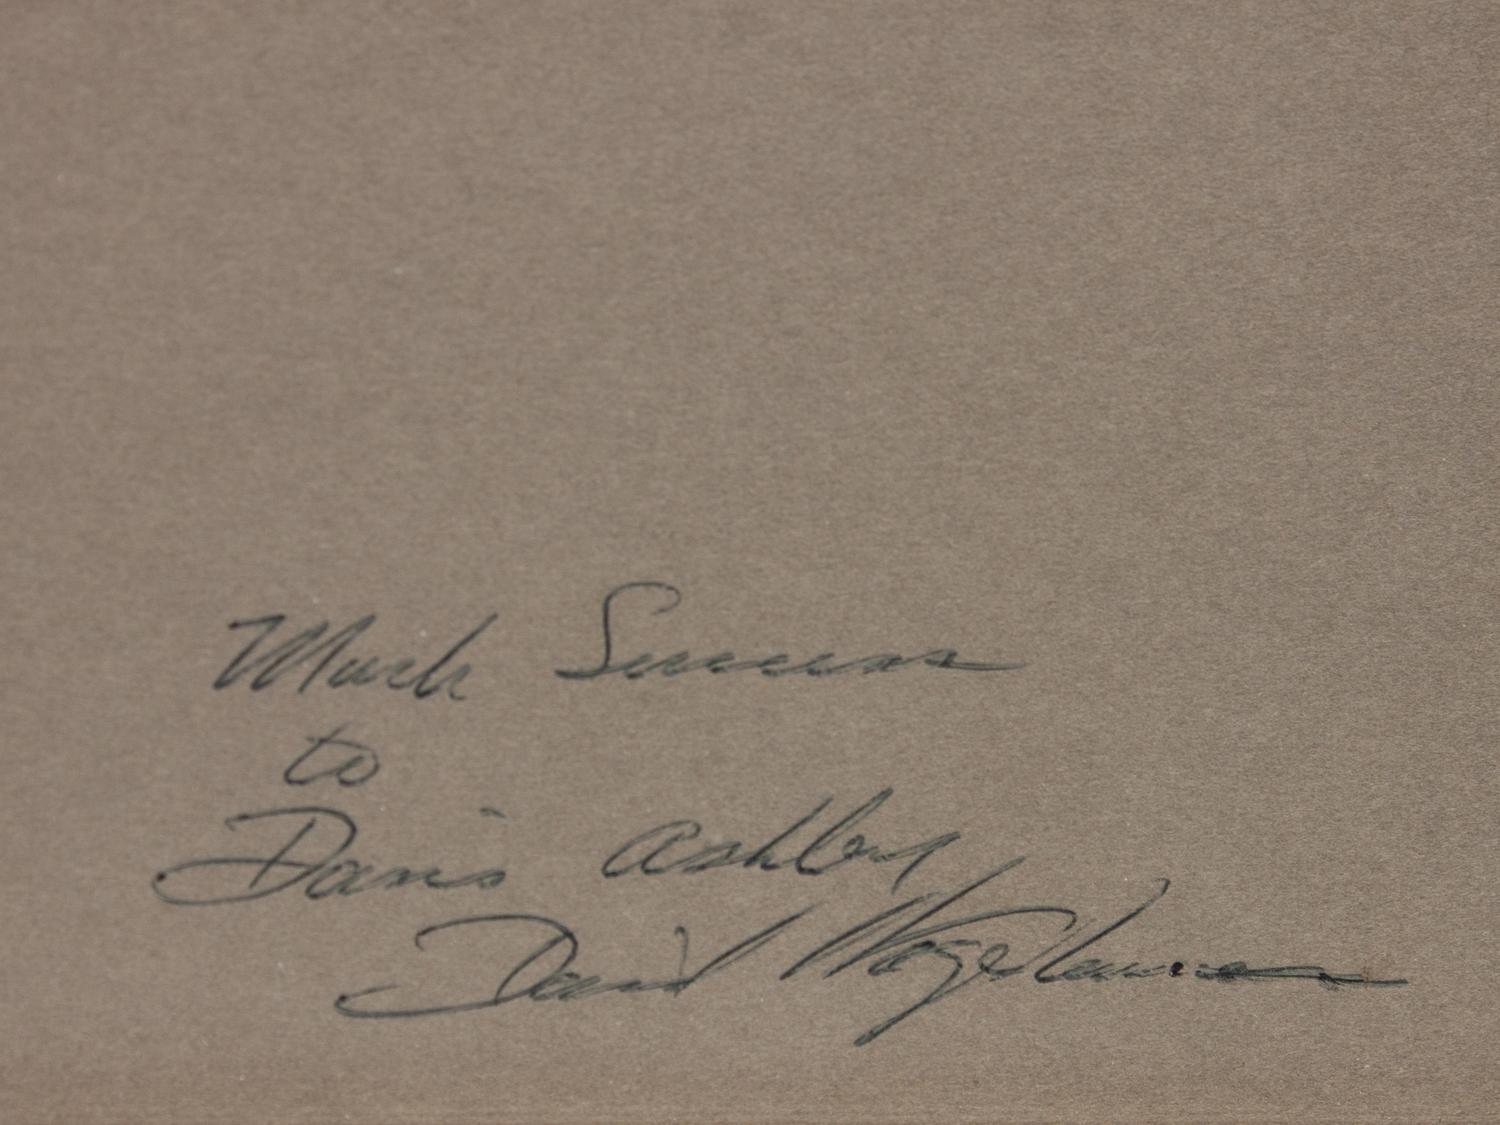 Much Success
to
Davis Ashby
David